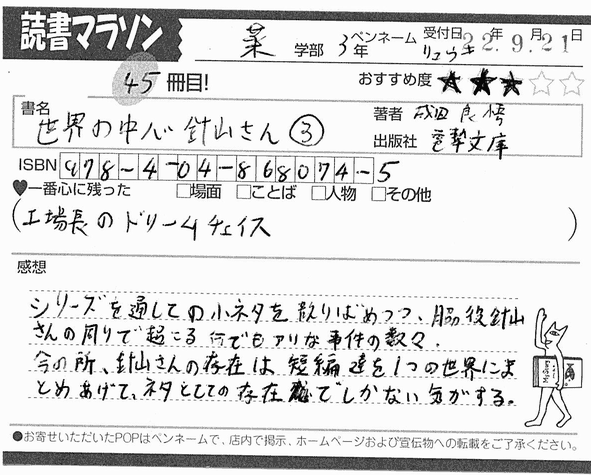 読書マラソン
菜 学部 3年 ペンネーム リュウキ 受付日 22年9月21日
45冊目! おすすめ度 ★★★☆☆
書名 世界の中心、針山さん③ 著者 成田良悟
出版社 電撃文庫
ISBN 978-4-04-868074-5
♥一番心に残った □場面 □ことば □人物 □その他
(工場長のドリームチェイス)
感想
シリーズを通しての小ネタを散りばめつつ、脇役針山
さんの周りで起こる何でもアリな事件の数々。
今の所、針山さんの存在は短編達を1つの世界にま
とめあげて、ネタとしての存在でしかない気がする。
●お寄せいただいたPOPはペンネームで、店内で掲示、ホームページおよび宣伝物への転載をご了承ください。